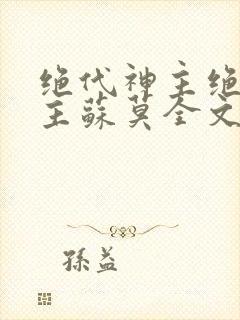 绝代神主绝
主蘇莫全文
孫益